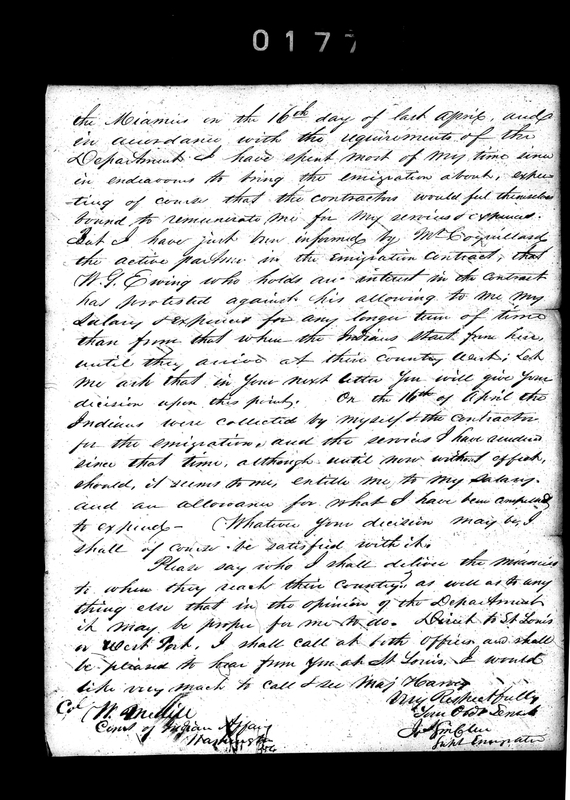 0177
the Miamies on the 16th day of last April, and
in accordance with the requirements of the
Department I have spent most of my time since
in endeavors to bring the emigration about, expec-
ting of course that the contractors would feel themselves
bound to remunerate me for my services & expences.
But I have just been informed by Mr Coquillard
the active partner in the emigration contract, that
W. G. Ewing who holds an interest in the contract
has protested against his allowing to me my
Salary & expences for any longer term of time
than from that when the Indians start from here
until they arrive at their country West; Let
me ask that in your next letter you will give your
decision upon this point. On the 16th of April the
Indians were collected by myself & the contractor
for the emigration, and the services I have rendered
since that time, although until now without effect,
should, it seems to me, entitle me to my Salary
and an allowance for what I have been compelled
to expend - Whatever your decision may be, I
shall of course be satisfied with it.
Please say who I shall deliver the miamies
to when they reach their country, as well as to any
thing else that in the opinion of the Department
it may be proper for me to do. Direct to St Louis
or West Port, I shall call at both offices and shall
be pleased to hear from you at St Louis, I would
like very much to call & see Maj Harvey
Very Respectfully
Your Obt Servt
Col W. Medill
Coms of Indian Affairs
Washington
Supt Emigration